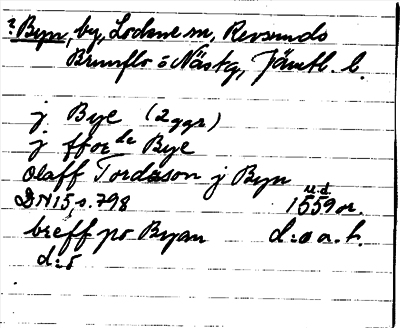 ? Byn, by, Lockne sn, Revsunds
Brunflo o Näskg, Jämtl. l.
j Bye (2 ggr)
j ffor de Bye
Olaff Tordsson j Byn
u.d.
DN 15, s. 798 1559 or.
breff po Byan d:o a. st.
d:o